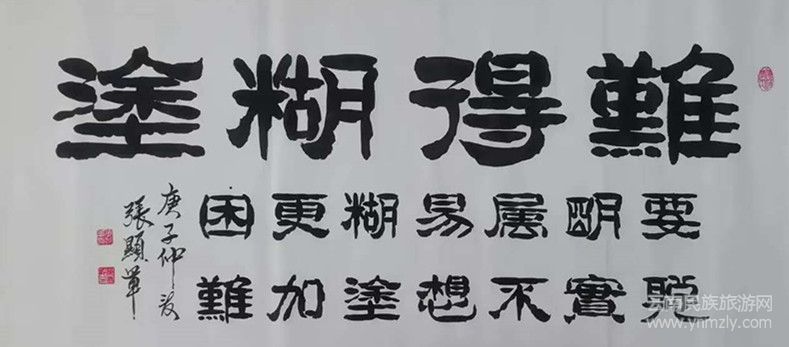 難得糊塗
要聰
明實
属不
易想
糊塗
更加
困難
庚子仲夏
張顯
云南民族旅游网
www.ynmzly.com